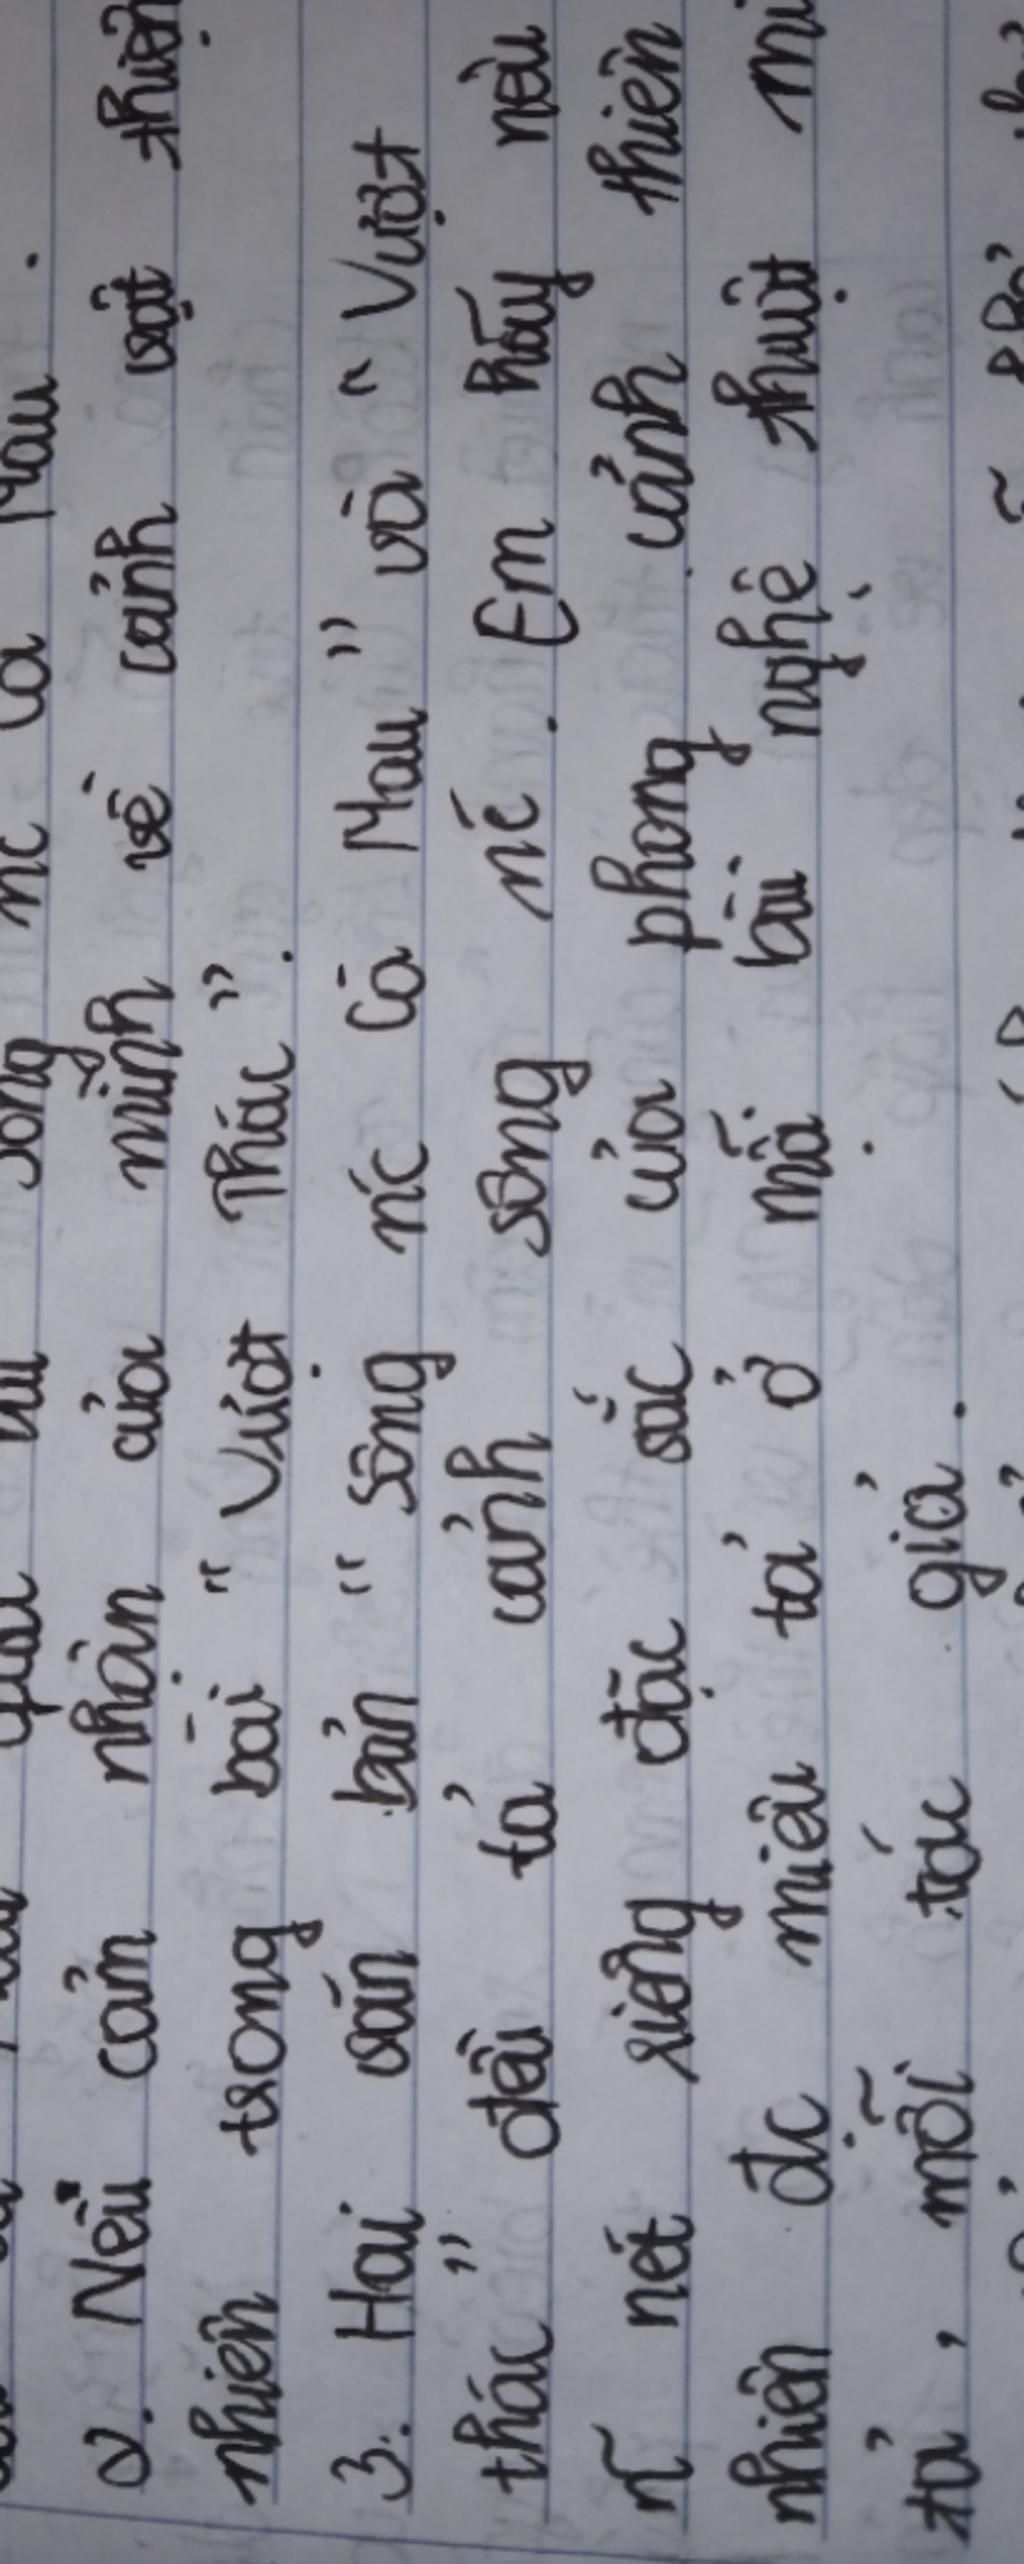 sông nc Cà Mau.
2. Nêu cảm nhận của mình về cảnh vật thiên
nhiên trong bài "Vượt Thác".
3. Hai văn bản "Sông nc Cà Mau" và "Vượt
thác" đều tả cảnh sông nc. Em hãy nêu
n~ nét riêng đặc sắc của phong cảnh thiên
nhiên đc miêu tả ở mỗi bài nghệ thuật mi
tả, mỗi tác giả.